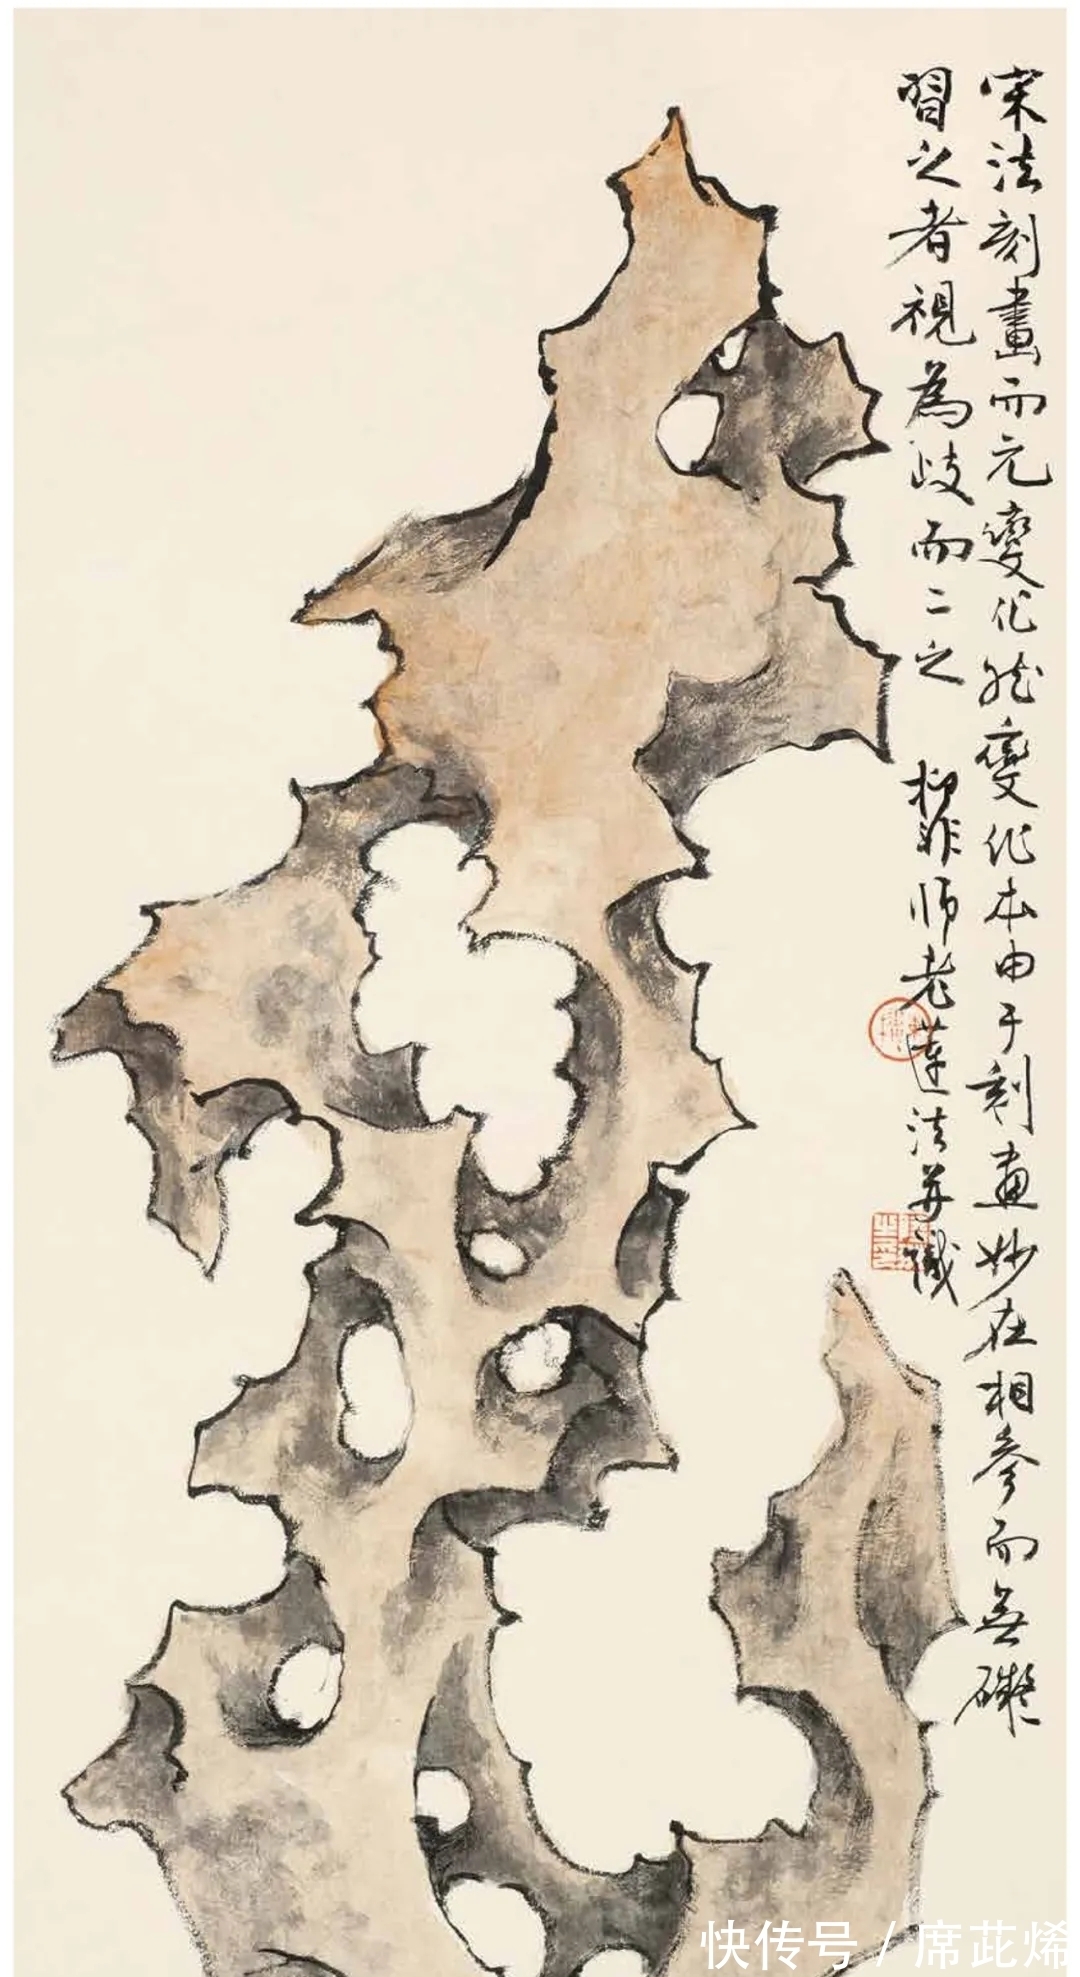 宋法刻畫而元變化然變化本由于刻畫妙在相參而無礙
習之者視為歧而二之
柳非師老蓮法并識
快传号 / 席茈烯